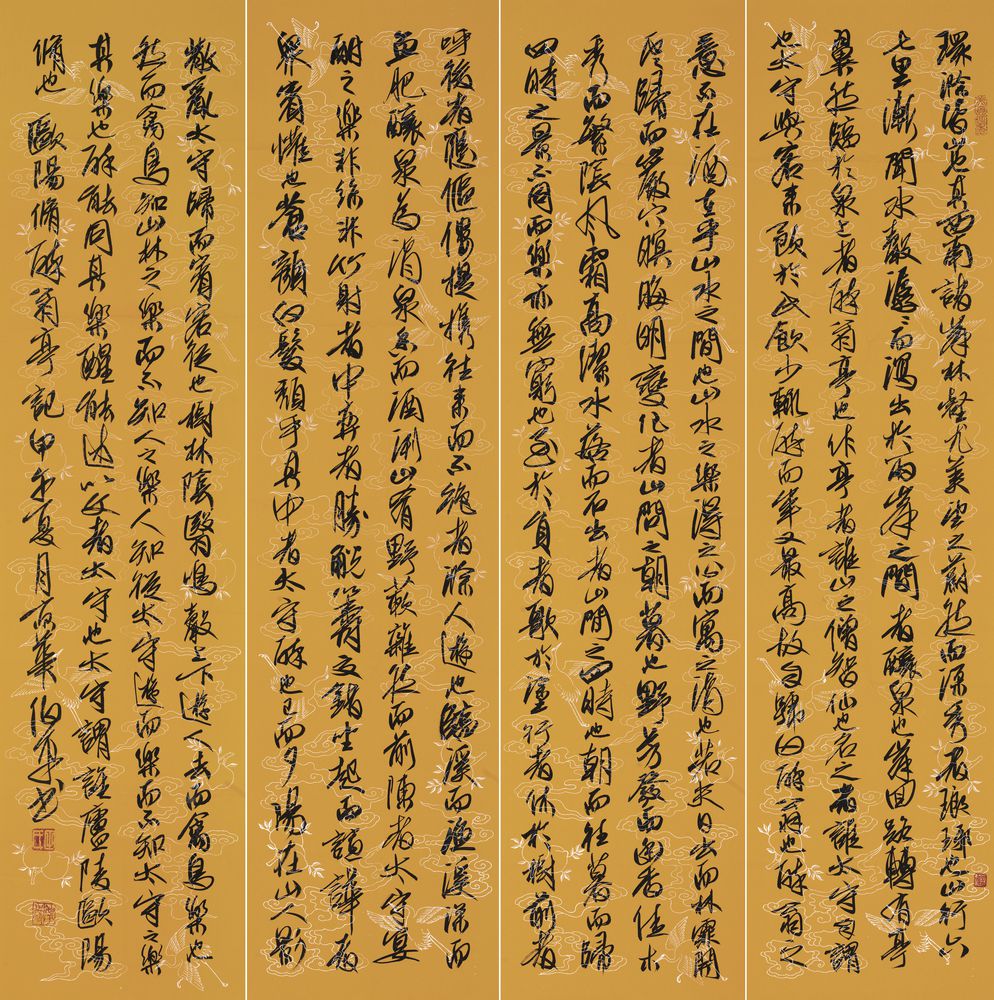 環滁皆山也其西南諸峰林壑尤美望之蔚然而深秀者瑯琊也山行六
七里漸聞水聲潺〻而瀉出於兩峯之間者釀泉也峯回路轉有亭
翼然臨於泉上者醉翁亭也作亭者誰山之僧智仙也名之者誰太守自謂
也太守與客來飲於此飲少輒醉而年又最高故自號曰醉翁也醉翁之
意不在酒在乎山水之間也山水之樂得之心而寓之酒也若夫日出而林霏開
雲歸而巖穴暝晦明變化者山間之朝暮也野芳發而幽香佳木
秀而繁陰風霜高潔水落而石出者山間之四時也朝而往暮而歸
四時之景不同而樂亦無窮也至於負者歌於塗行者休於樹前者
呼後者應傴僂提携往來而不絕者滁人遊也臨溪而漁溪深而
魚肥釀泉為酒泉香而酒洌山肴野蔌雜然而前陳者太守宴
酣之樂非絲非竹射者中弈者勝觥籌交錯坐起而諠譁者
眾賓懽也蒼顏白髮頹乎其中者太守醉也已而夕陽在山人影
散亂太守歸而賓客從也樹林陰翳鳴聲上下遊人去而禽鳥樂也
然而禽鳥知山林之樂而不知人之樂人知從太守遊而樂而不知太守之樂
其樂也醉能同其樂醒能述以文者太守也太守謂誰廬陵歐陽
脩也 歐陽脩醉翁亭記甲午夏月書